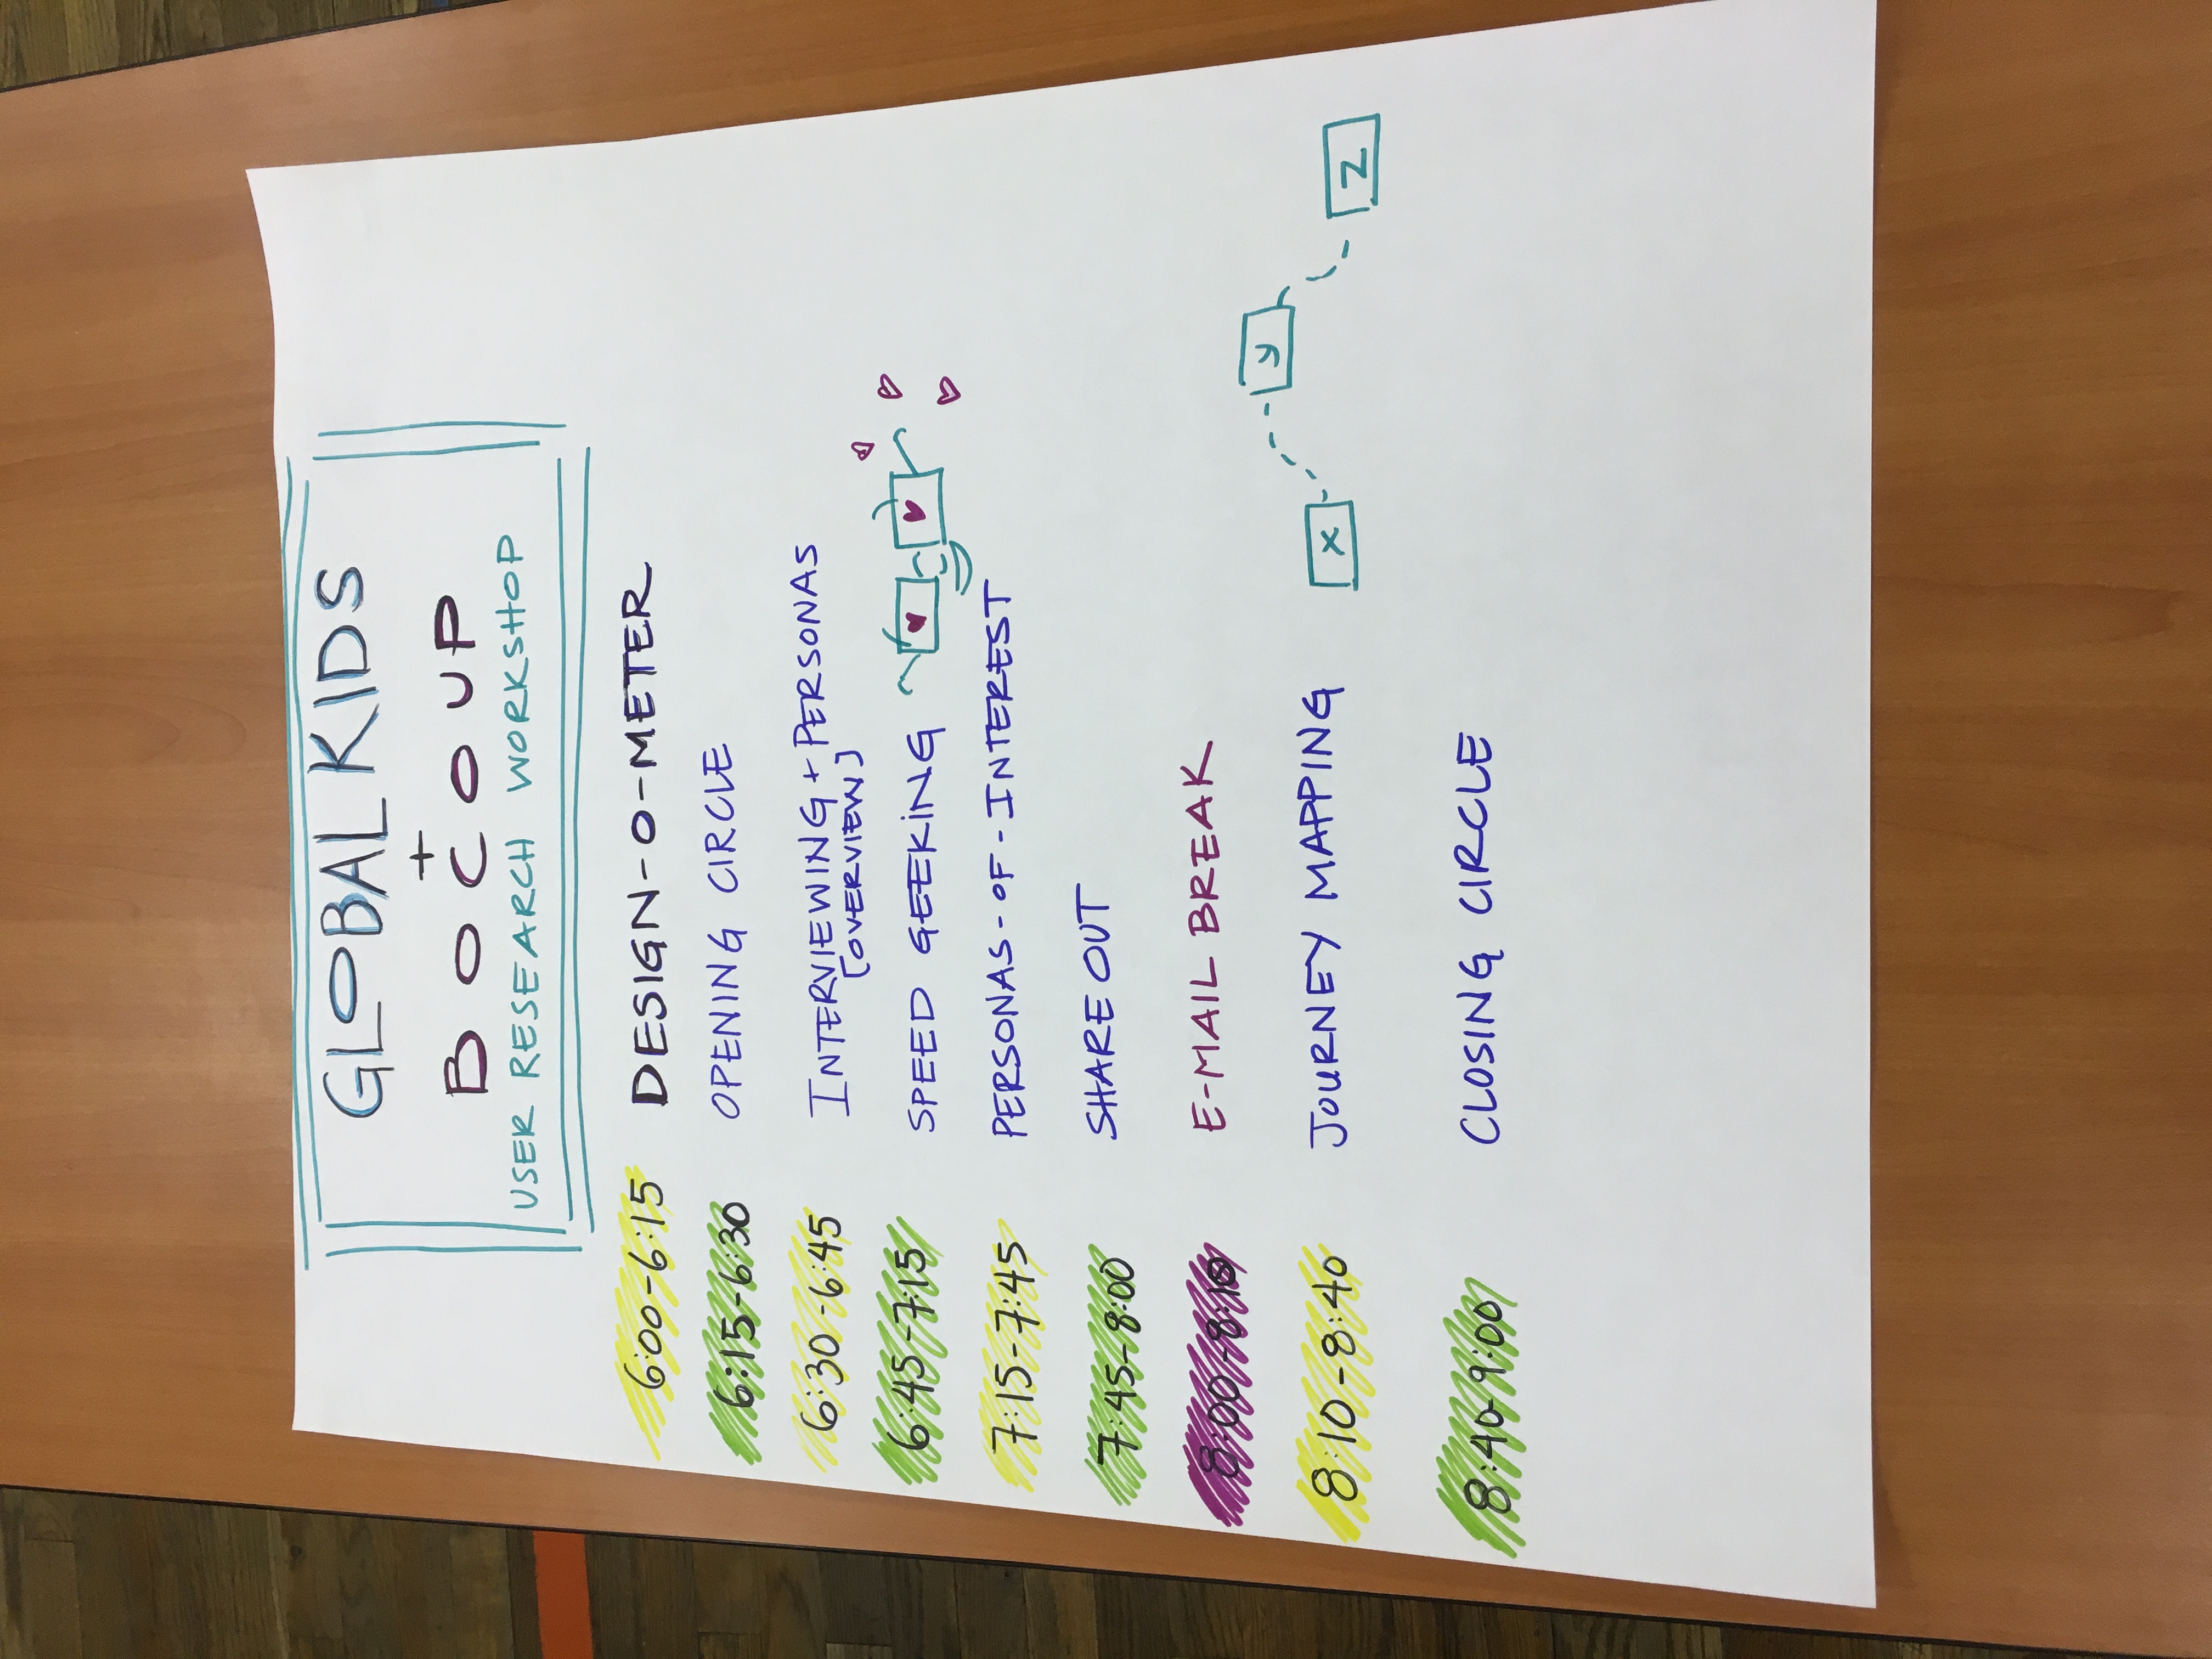 GLOBAL KIDS
+
BOCOUP
USER RESEARCH WORKSHOP
6:00-6:15 DESIGN-O-METER
6:15-6:30 OPENING CIRCLE
6:30-6:45 INTERVIEWING + PERSONAS
[OVERVIEW]
6:45-7:15 SPEED GEEKING
7:15-7:45 PERSONAS-OF-INTEREST
7:45-8:00 SHARE OUT
8:00-8:10 E-MAIL BREAK
8:10-8:40 JOURNEY MAPPING
X Y Z
8:40-9:00 CLOSING CIRCLE